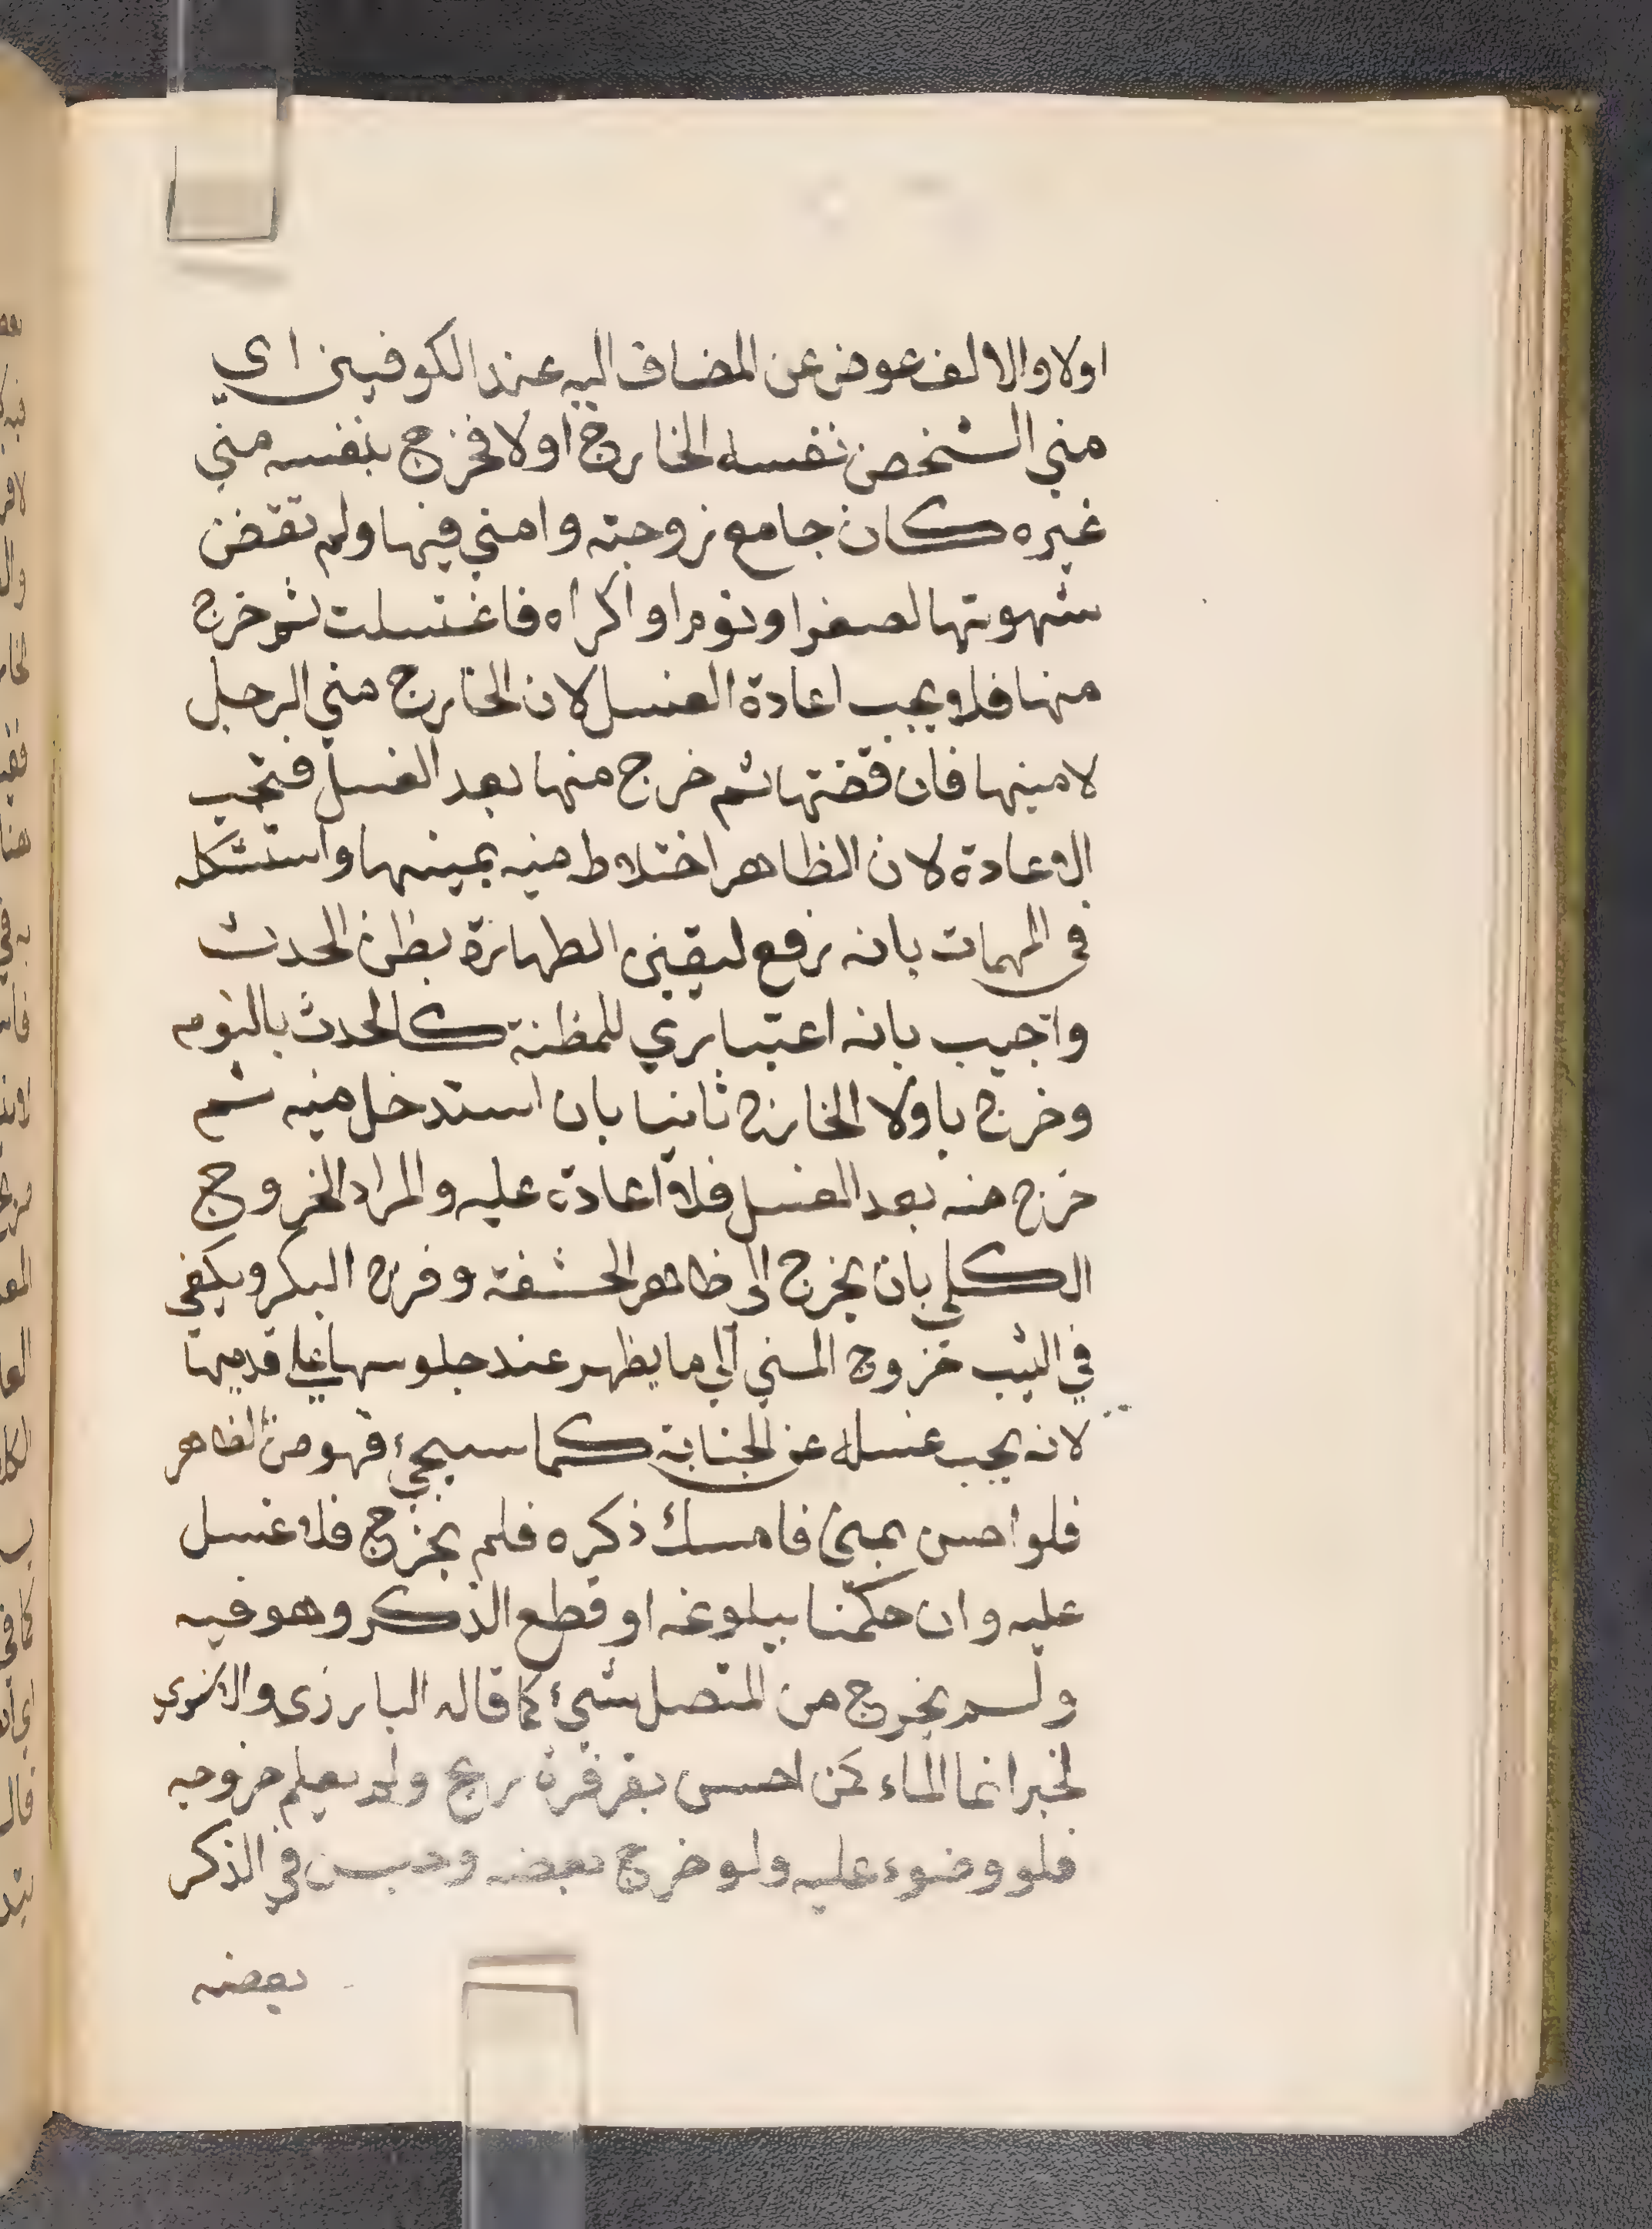 اولا والالف عوض عن المضاف اليه عند الكوفيين اي
مني الشخص نفسه الخارج اولا فخرج بنفسه مني
غيره كان جامع زوجته وامني فيها ولم تقض
شهوتها لصغر او نوم او اكراه فاغتسلت ثم خرج
منها فلا يجب اعادة الغسل لان الخارج مني الرجل
لا منيها فان قضتها ثم خرج منها بعد الغسل فتجب
الاعادة لان الظاهر اختلاط منيه بمنيها واستشكله
في المهمات بانه رفع ليقين الطهارة بظن الحدث
واجيب بانه اعتباري للمظنة كالحدث بالنوم
وخرج باولا الخارج ثانيا بان استدخل منيه ثم
خرج منه بعد الغسل فلا اعادة عليه والمراد الخروج
الكلي بان يخرج الى ظاهر الحشفة وفرج البكر ويكفي
في الثيب خروج المني الي ما يظهر عند جلوسها على قدميها
لانه يجب غسله عن الجنابة كما سيجيء فهو من الظاهر
فلو احس بمني فامسك ذكره فلم يخرج فلا غسل
عليه وان حكمنا ببلوغه او قطع الذكر وهو فيه
ولم يخرج من المتصل شيء كما قاله البارزي والاسنوي
لخبر انما الماء كمن احس بقرقرة ريح ولم يعلم خروجه
فلو وضوء عليه ولو خرج بعضه وحبس في الذكر
بعضه